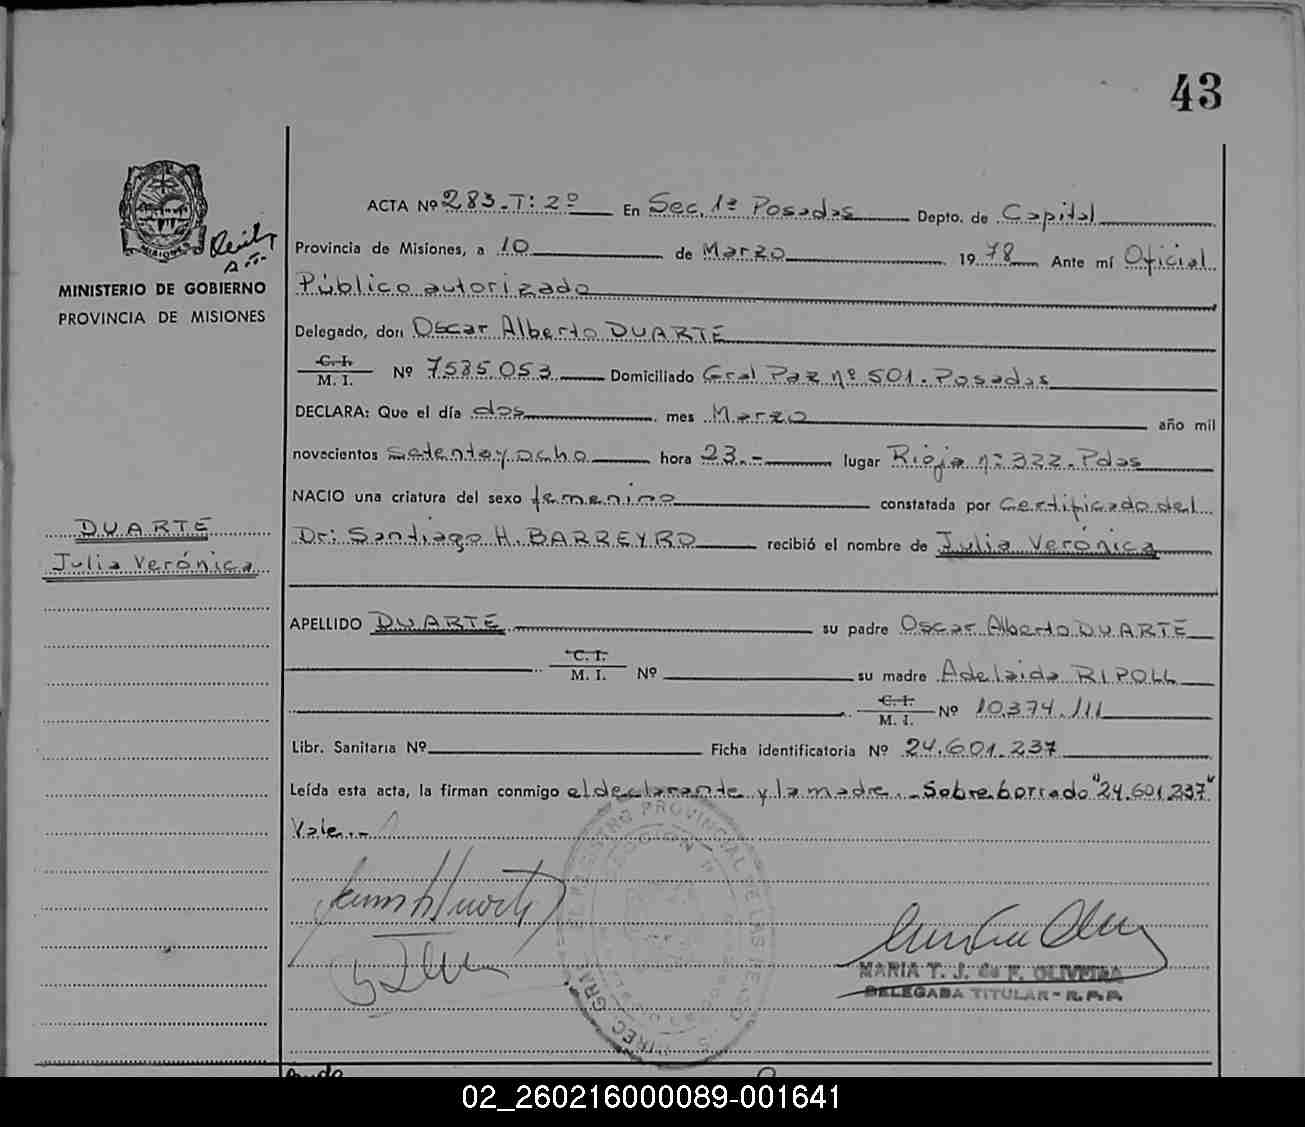 43
ACTA Nº 283-T: 2º En Sec. 1ª Posadas Depto. de Capital
Provincia de Misiones, a 10 de Marzo 1978 Ante mí Oficial
Público autorizado
MINISTERIO DE GOBIERNO
PROVINCIA DE MISIONES
Delegado, don Oscar Alberto DUARTE
C. I.
M. I. Nº 7585.053 Domiciliado Gral Paz nº 501. Posadas
DECLARA: Que el día dos mes Marzo año mil
novecientos setenta y ocho hora 23.- lugar Rioja nº 322. Pdas
NACIO una criatura del sexo femenino constatada por Certificado del
DUARTE
Julia Verónica
Dr: Santiago H. BARREYRO recibió el nombre de Julia Verónica
APELLIDO DUARTE su padre Oscar Alberto DUARTE
C. I.
M. I. Nº su madre Adelaida RIPOLL
C. I.
M. I. Nº 10.374.111
Libr. Sanitaria Nº Ficha identificatoria Nº 24.601.237
Leída esta acta, la firman conmigo el declarante y la madre.- Sobreborrado "24.601.237"
Vale.-
MARIA T. J. de F. OLIVEIRA
DELEGADA TITULAR - R.P.P.
02_260216000089-001641